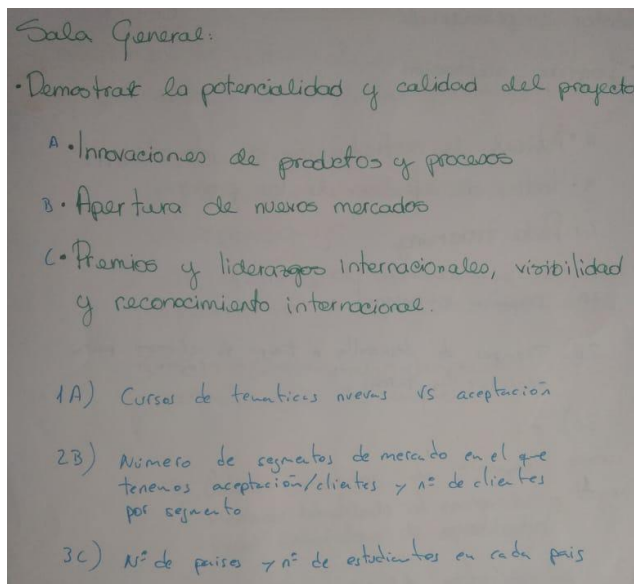 Sala General:
• Demostrar la potencialidad y calidad del proyecto
A • Innovaciones de productos y procesos
B • Apertura de nuevos mercados
C • Premios y liderazgos internacionales, visibilidad
y reconocimiento internacional.
1A) Cursos de temáticas nuevas vs aceptación
2B) Número de segmentos de mercado en el que
tenemos aceptación/clientes y nº de clientes
por segmento
3C) Nº de paises y nº de estudiantes en cada pais